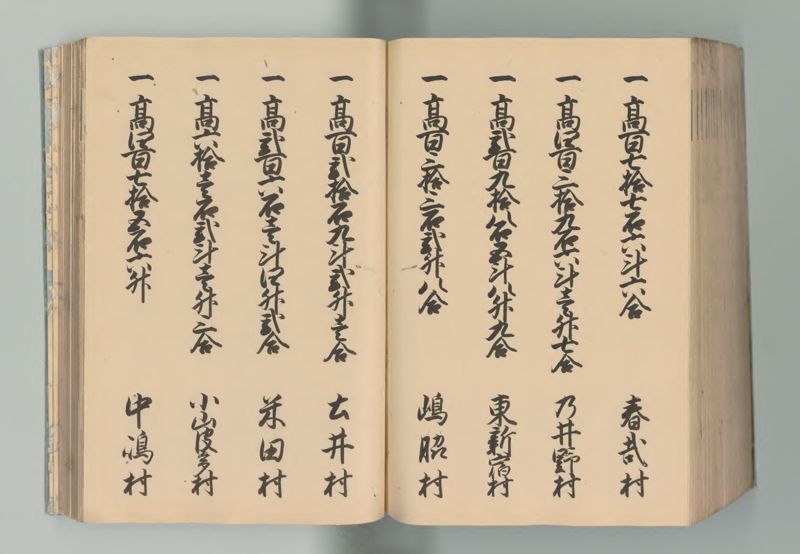 一高百七拾七石六斗六合 春哉村
一高四百三拾九石六斗壱升七合 乃井野村
一高弐百九拾八石五斗八升九合 東新宿村
一高百三拾三石弐升八合 嶋昭村
一高百弐拾石九斗弐升壱合 土井村
一高弐百六石壱斗四升弐合 米田村
一高六拾壱石弐斗壱升三合 小山村
一高四百七拾五石六升 中嶋村